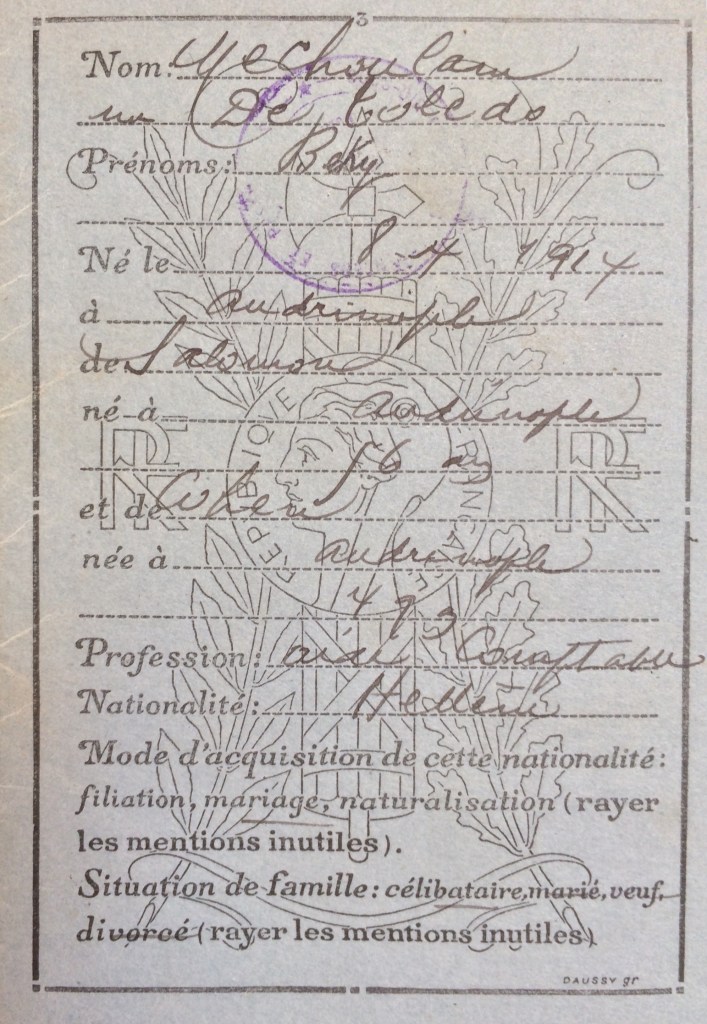 3
Nom: Mechoulam
De Toledo
Prénoms: Beky
Né le 8 4 1914
à andrinople
de Salomon
né à andrinople
56 as
et de Cohen
née à andrinople
Profession: aide Comptable
Nationalité: Hellène
Mode d'acquisition de cette nationalité:
filiation, mariage, naturalisation (rayer
les mentions inutiles).
Situation de famille: célibataire, marié, veuf,
divorcé (rayer les mentions inutiles)
RF
RF
REPUBLIQUE FRANÇAISE
DAUSSY gr